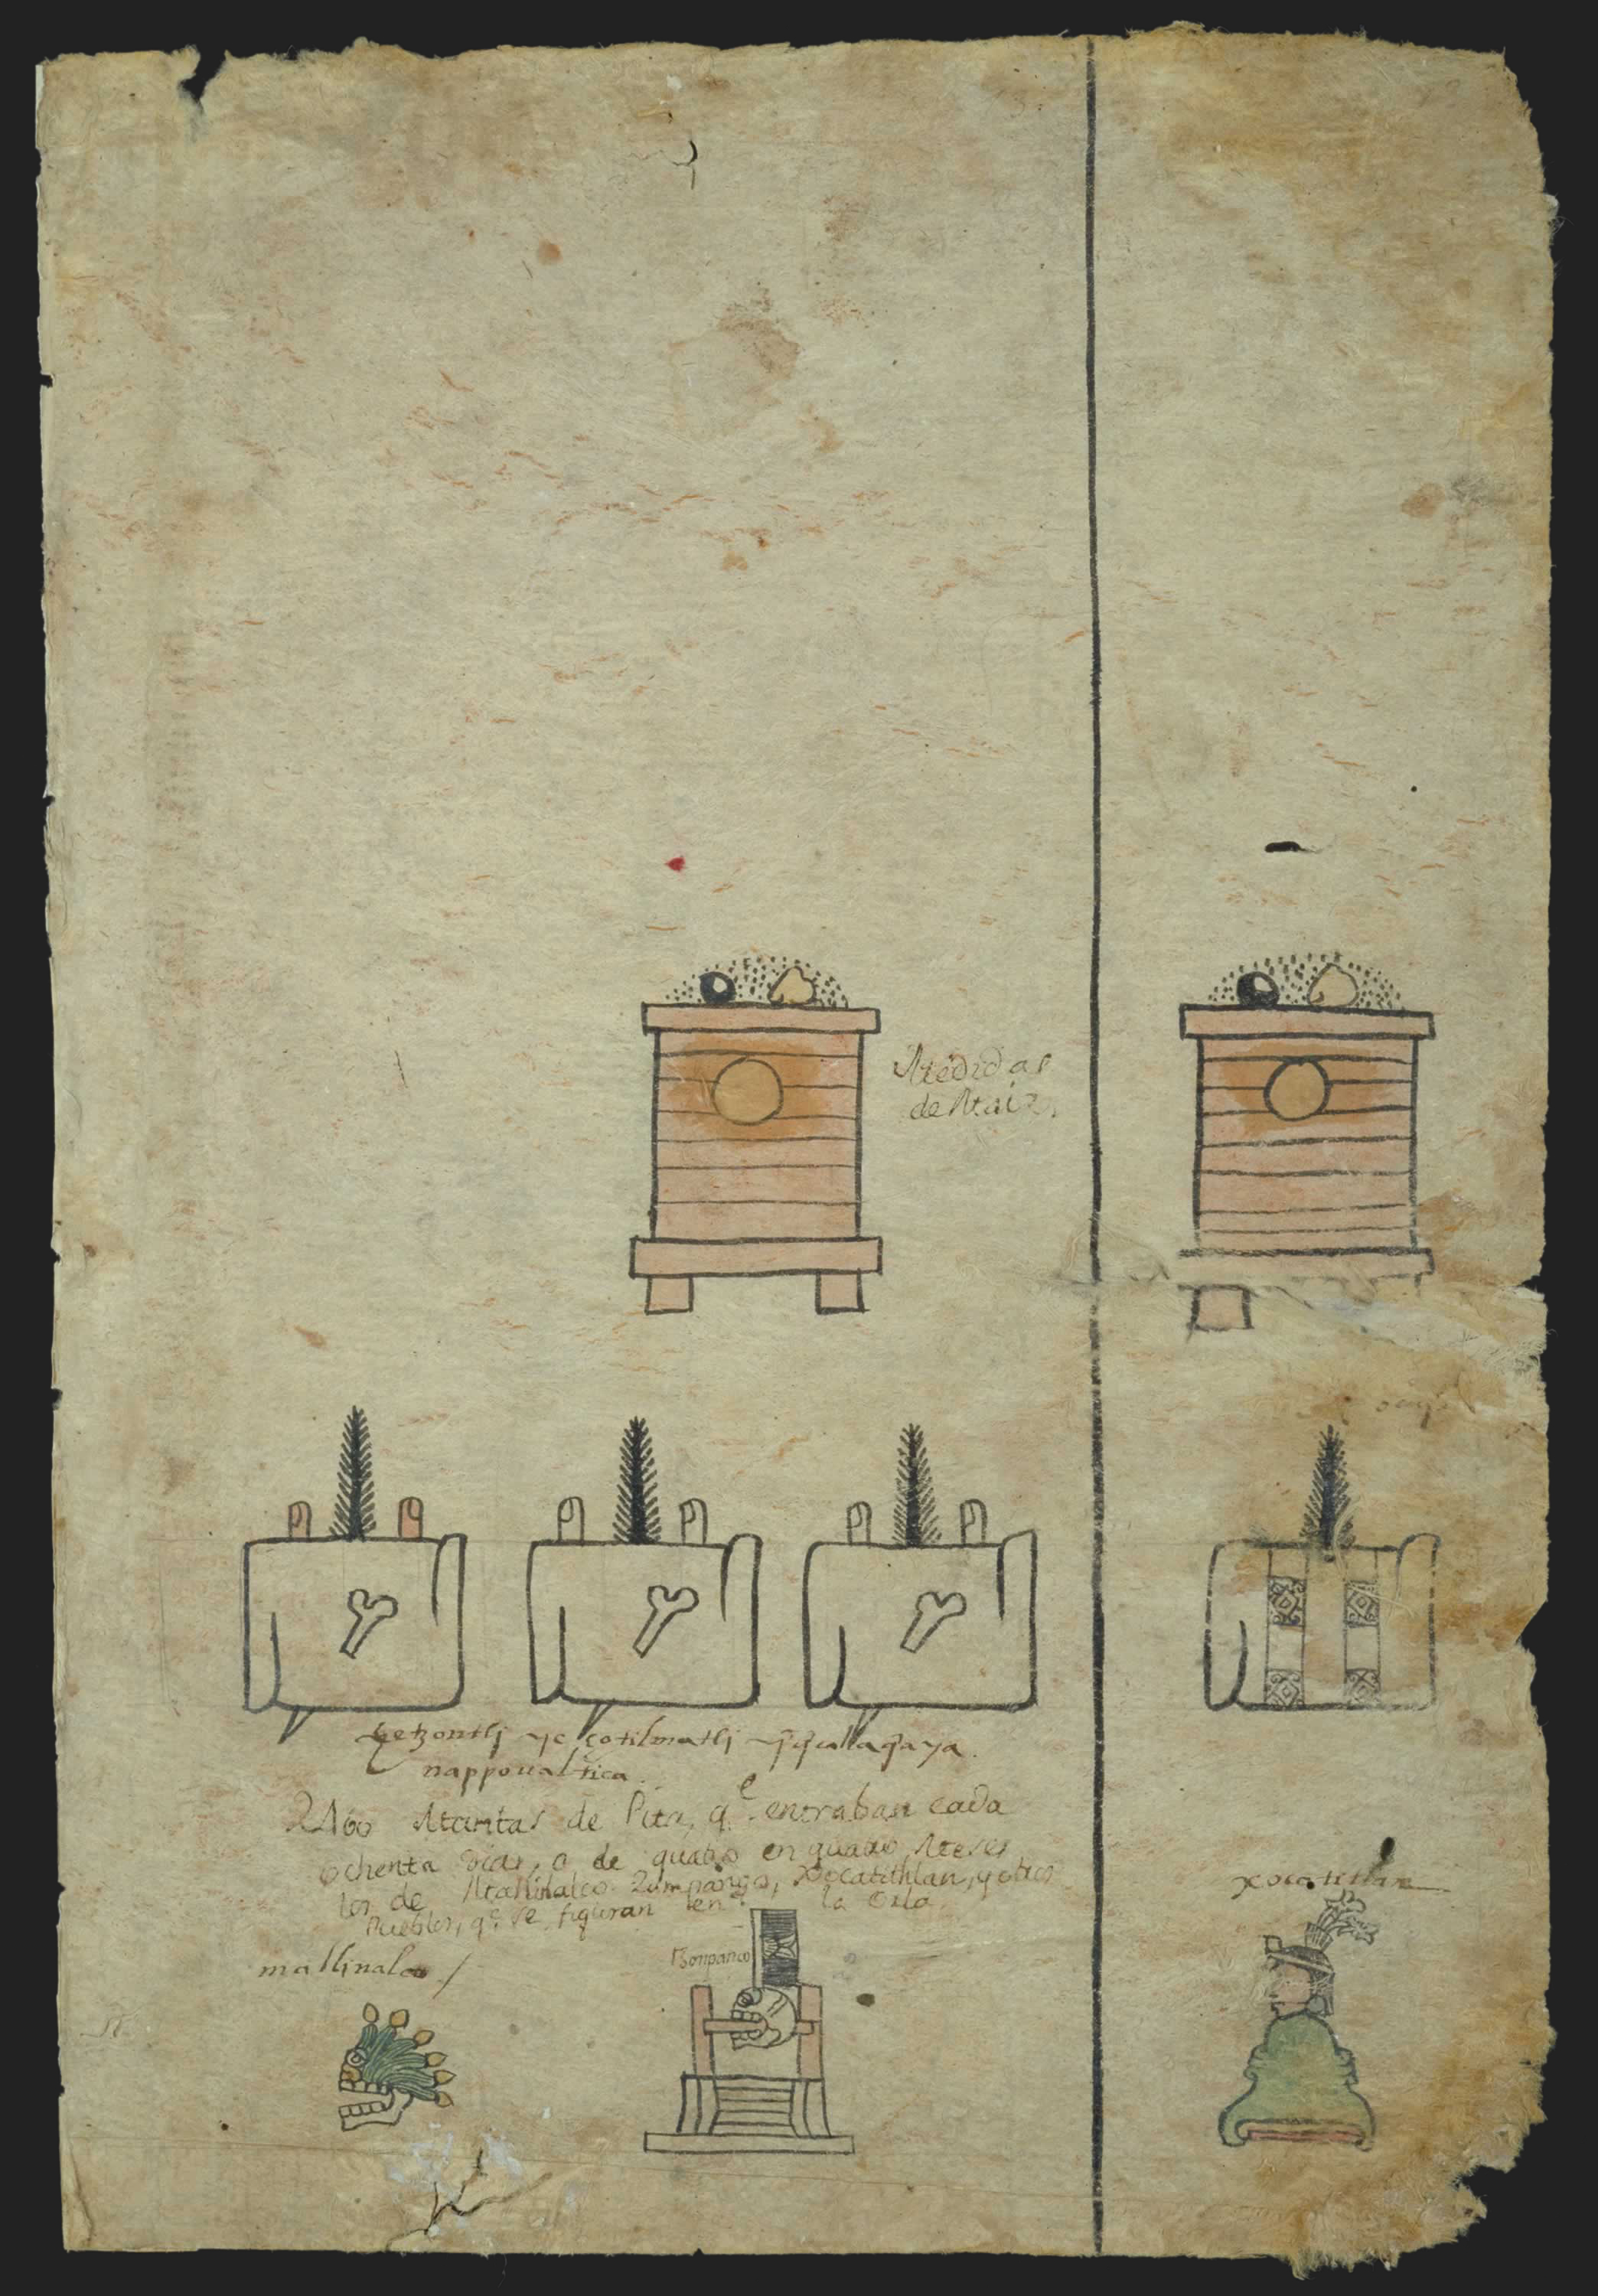 Medidas
de Maiz,
yc çotilmatlj
nappoualtica
Mantas de Pita, q.e entraban cada
ochenta dias, o de quatro en quatro Meses
los de Malinalco Zumpango, Xocatithlan, y otros
Pueblos, q.e se figuran en la Orla
mallinalco /
Tzonpanco
xocatitlan